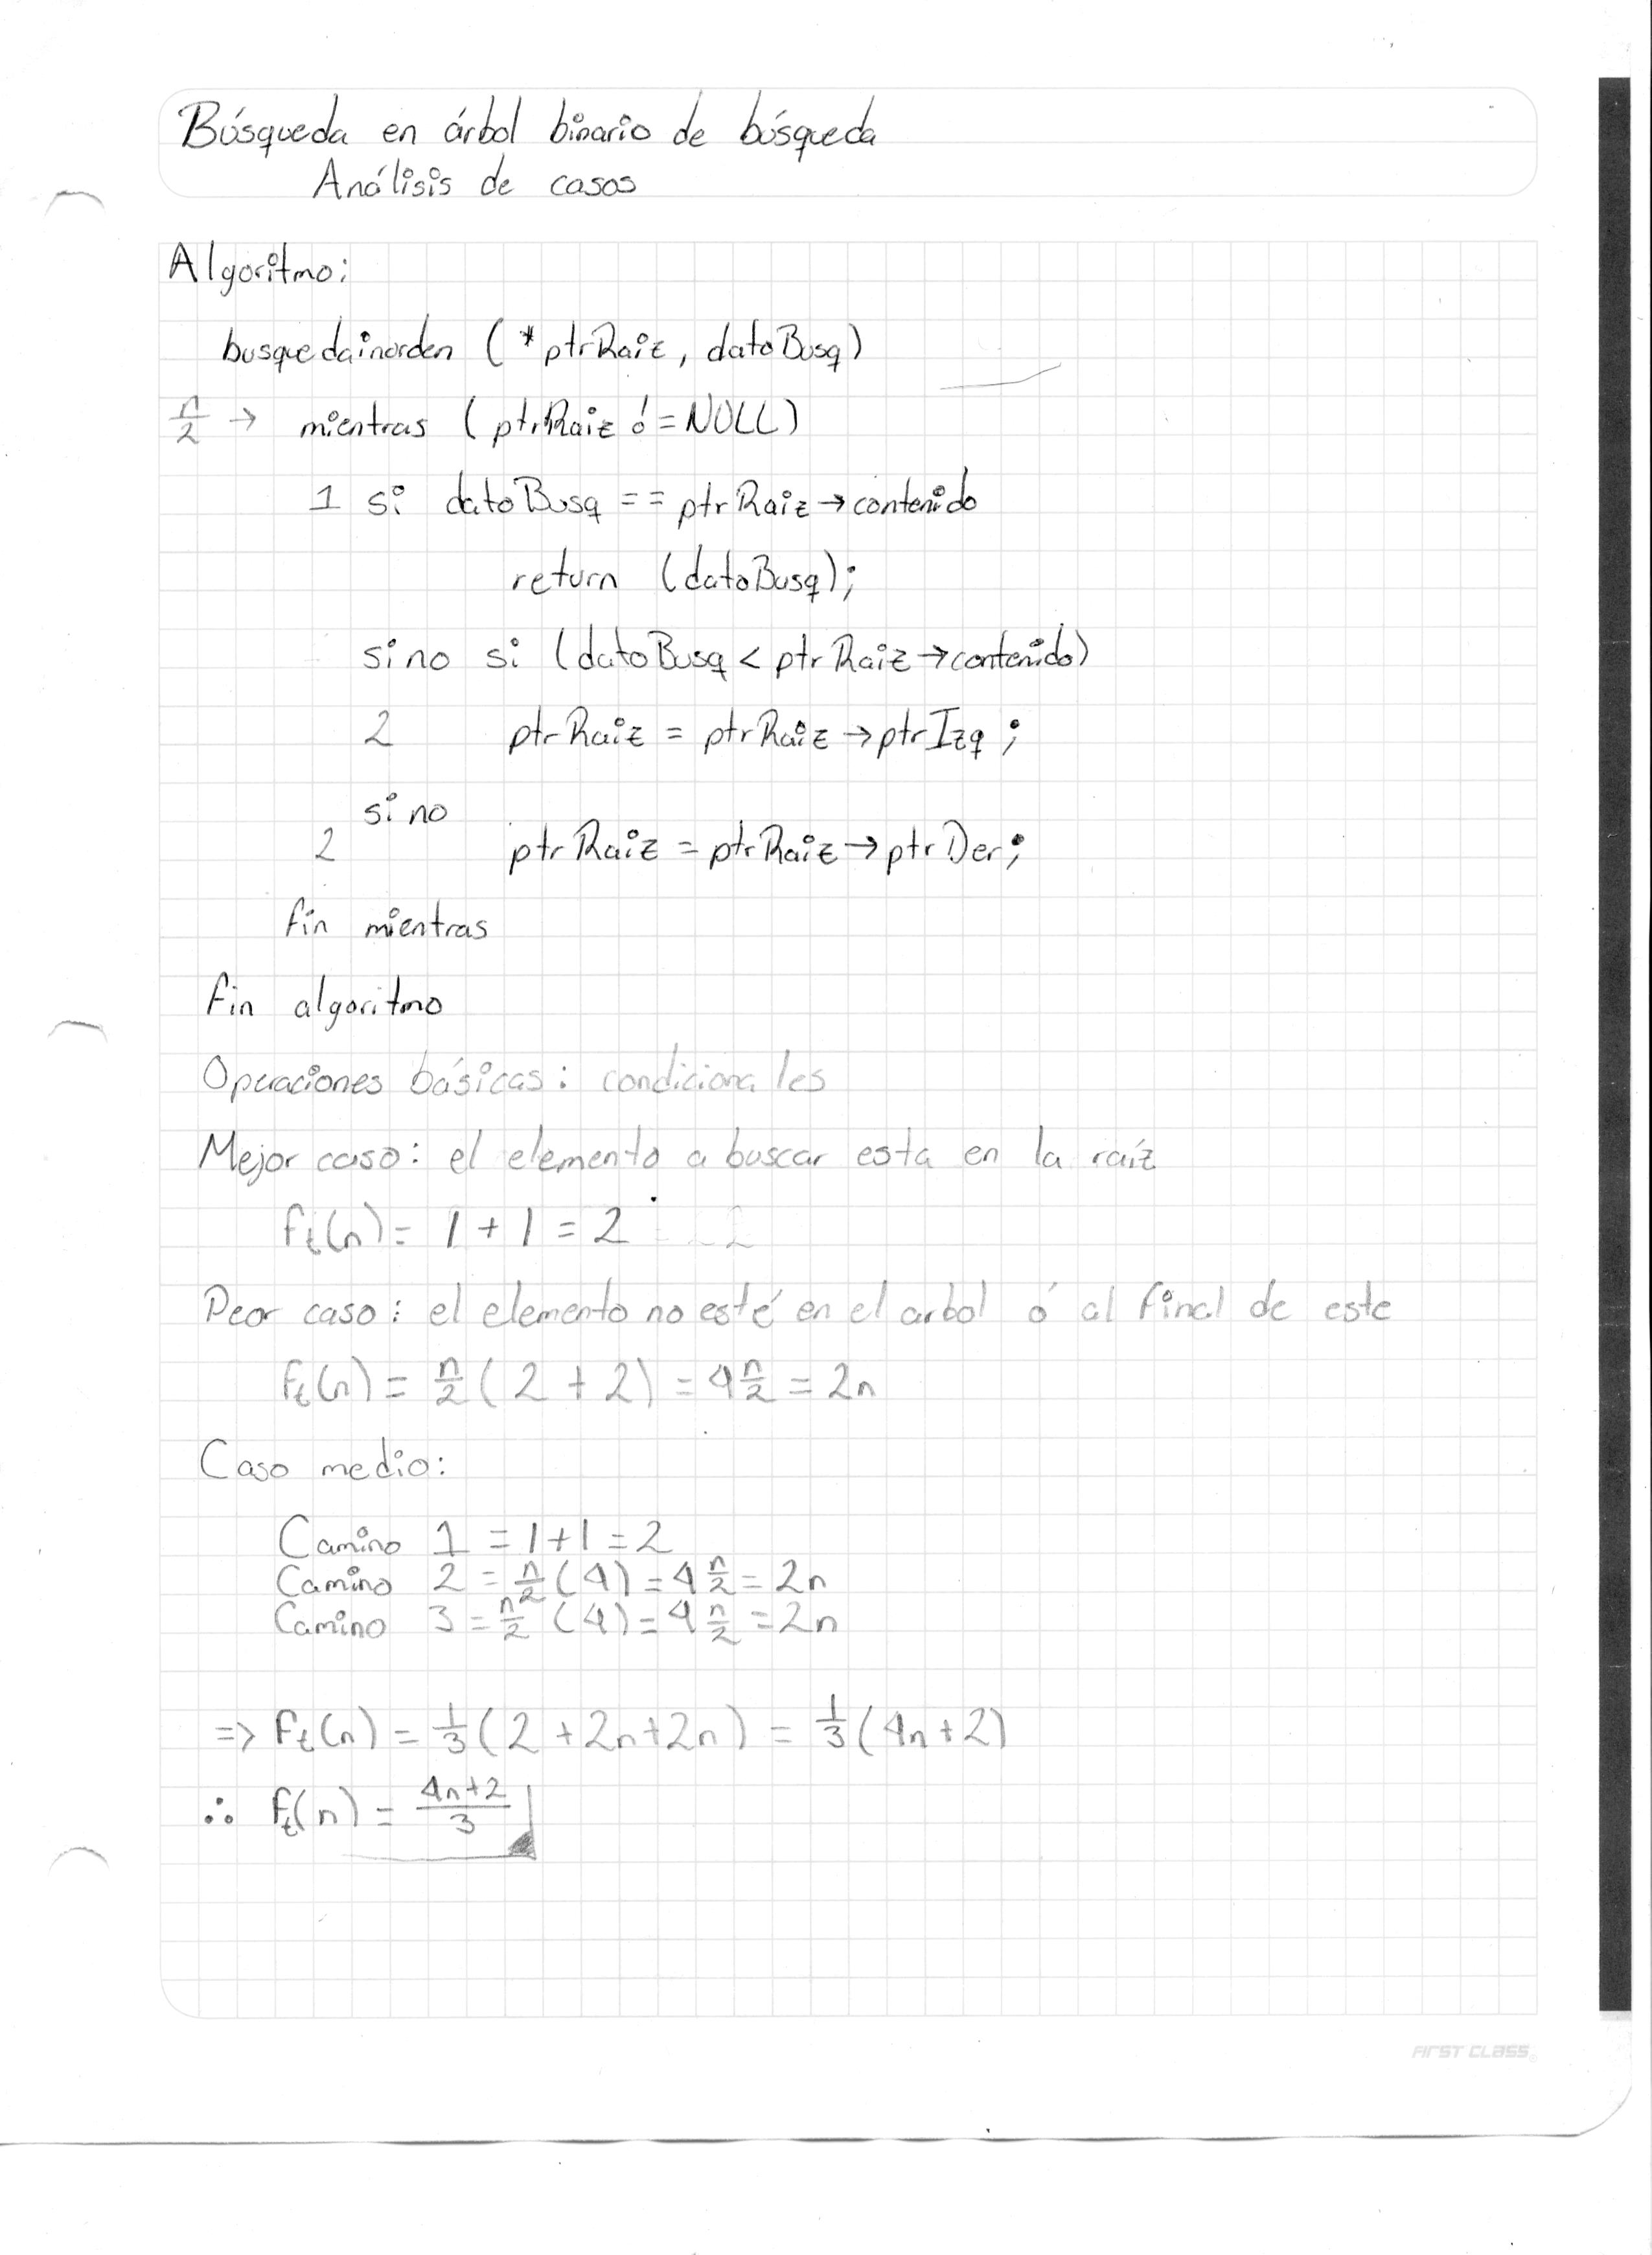 Búsqueda en árbol binario de búsqueda
Análisis de casos
Algoritmo:
busquedainorden (*ptrRaiz, datoBusq)
n/2 → mientras (ptrRaiz != NULL)
1 si datoBusq == ptrRaiz → contenido
return (datoBusq);
sino si (datoBusq < ptrRaiz → contenido)
2 ptrRaiz = ptrRaiz → ptrIzq;
sino
2 ptrRaiz = ptrRaiz → ptrDer;
fin mientras
fin algoritmo
Operaciones básicas: condicionales
Mejor caso: el elemento a buscar esta en la raíz
ft(n) = 1 + 1 = 2
Peor caso: el elemento no esté en el arbol ó al final de este
ft(n) = n/2 (2 + 2) = 4 n/2 = 2n
Caso medio:
Camino 1 = 1+1 = 2
Camino 2 = n/2 (4) = 4 n/2 = 2n
Camino 3 = n/2 (4) = 4 n/2 = 2n
=> ft(n) = 1/3 (2 + 2n + 2n) = 1/3 (4n + 2)
∴ ft(n) = 4n+2/3
FIRST CLASS